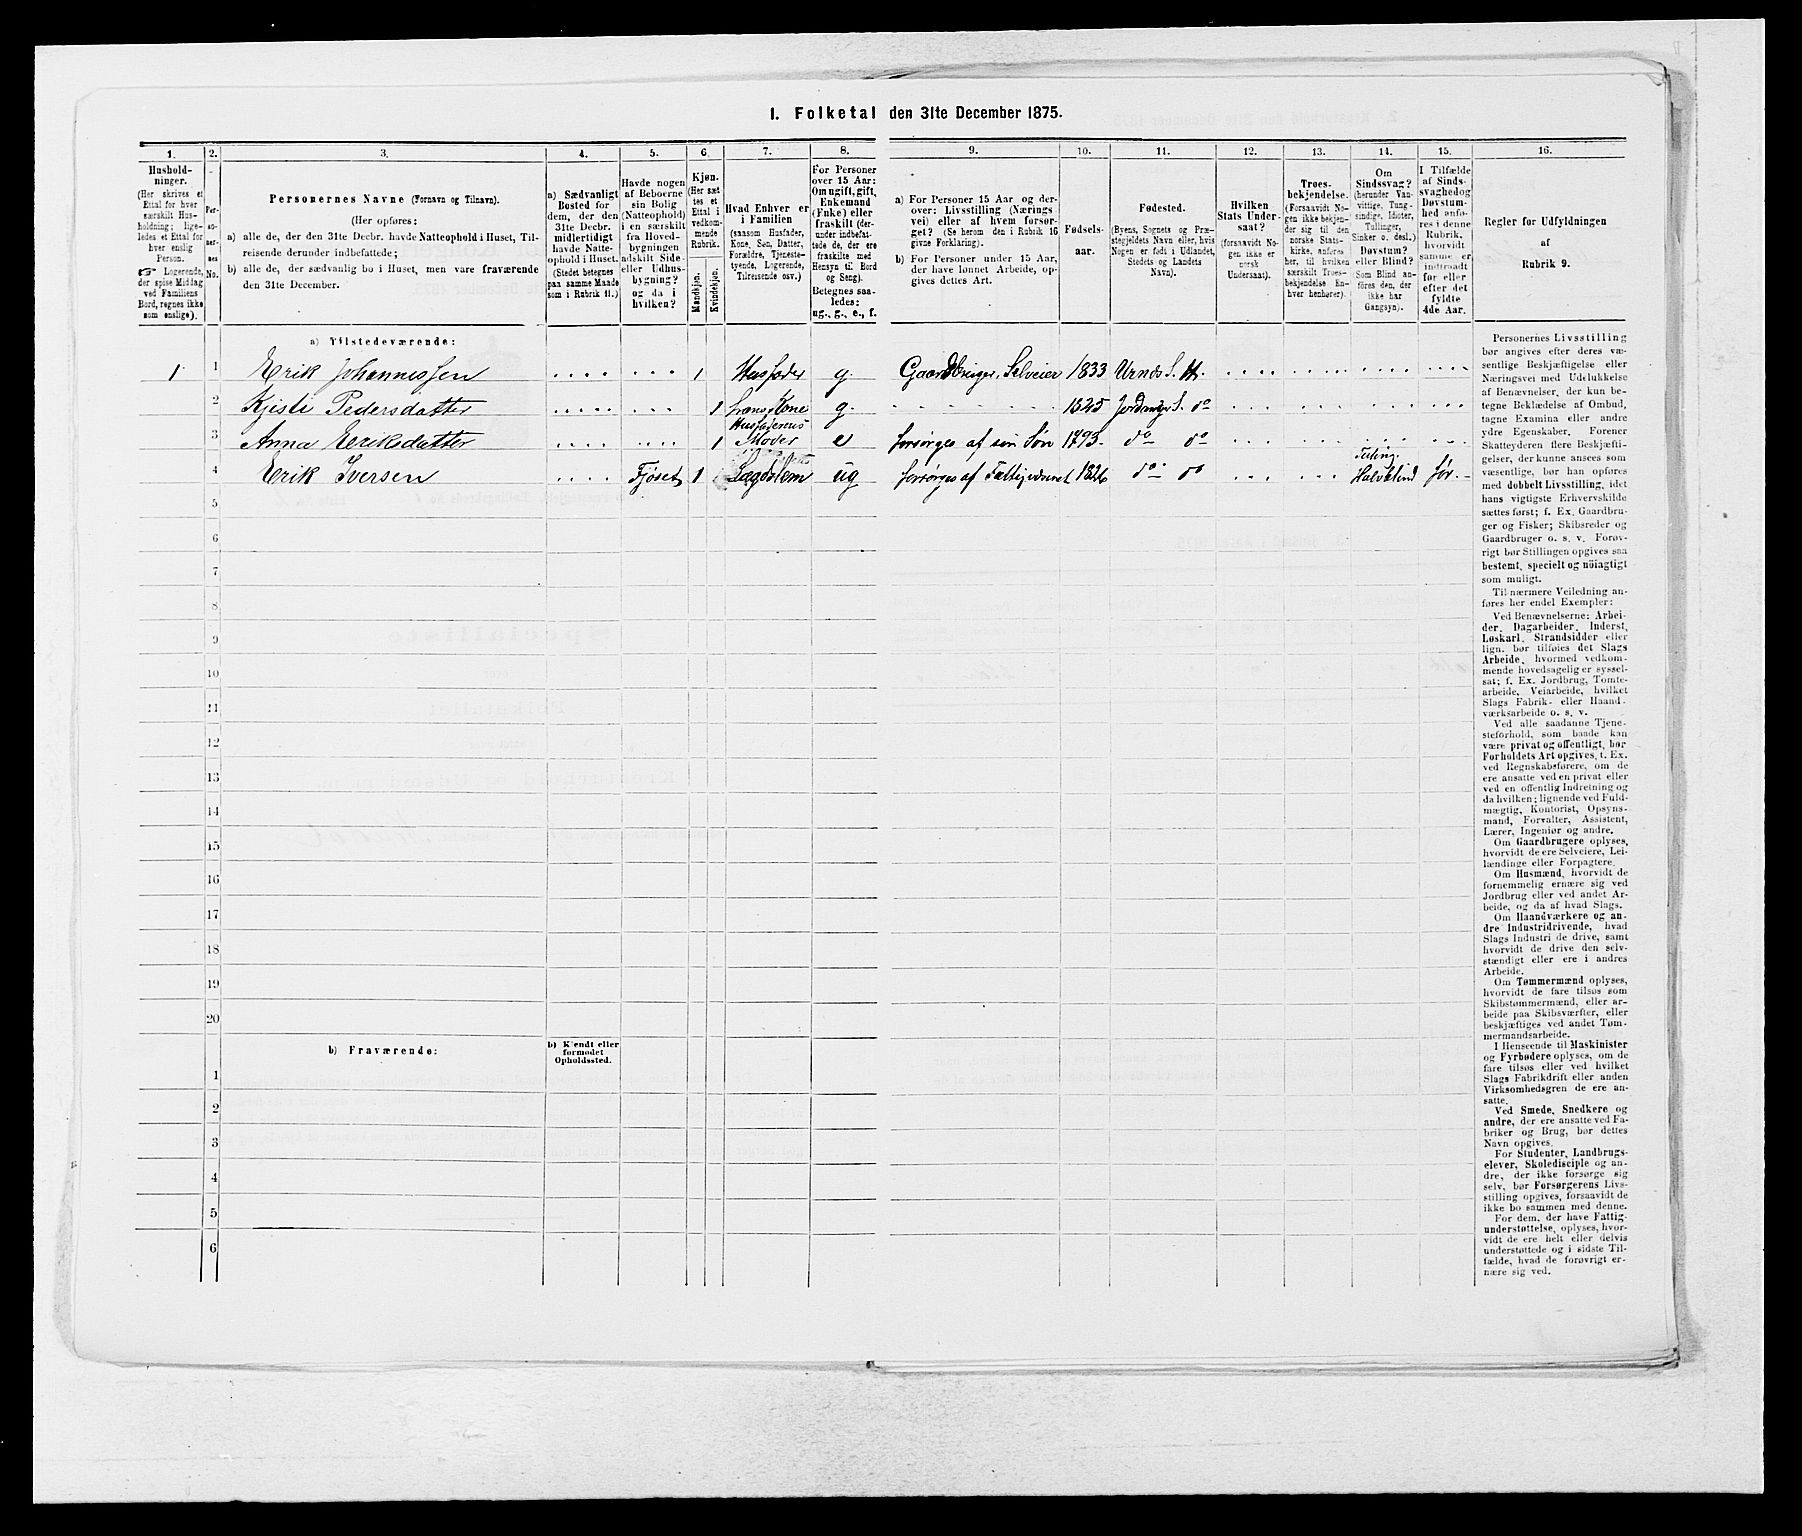 I. Folketal den 31te December 1875.
1. 2. 3. 4. 5. 6. 7. 8. 9. 10. 11. 12. 13. 14. 15. 16.
Hushold-
ninger.
(Her skrives et
Ettal for hver
særskilt Hus-
holdning; lige-
ledes et Ettal for
enslig
Person.
☞ Logerende,
der spise Middag
ved Familiens
Bord, regnes ikke
som enslige).
Per-
so-
ner-
nes
No.
Personernes Navne (Fornavn og Tilnavn).
(Her opføres:
a) alle de, der den 31te Decbr. havde Natteophold i Huset, Til-
reisende derunder indbefattede;
b) alle de, der sædvanlig bo i Huset, men vare fraværende
den 31te December.
a) Sædvanligt
Bosted for
dem, der den
31te Decbr.
midlertidigt
havde Natte-
ophold i Huset.
(Stedet betegnes
paa samme Maade
som i Rubrik 11.)
Havde nogen
af Beboerne
sin Bolig
(Natteophold)
i en særskilt
fra Hoved-
bygningen
adskilt Side-
eller Udhus-
bygning?
og da i
hvilken?
Kjøn.
(Her sæt
tes et
Ettal i
vedkom-
mende
Rubrik.
Mandkjøn.
Kvindekjøn.
Hvad Enhver er
i Familien
(saasom Husfader,
Kone, Søn, Datter,
Forældre, Tjeneste-
tyende, Logerende,
Tilreisende osv.)
For Personer
over 15 Aar:
Om ugift, gift,
Enkemand
(Enke) eller
fraskilt (der-
under indbefat-
tede de, der ere
fraskilte med
Hensyn til Bord
og Seng).
Betegnes saa-
ledes:
ug., g., e., f.
a) For Personer 15 Aar og der-
over: Livsstilling (Nærings
vei) eller af hvem forsør-
get? (Se herom den i Rubrik 16
givne Forklaring).
b) For Personer under 15 Aar,
der have lønnet Arbeide, op-
gives dettes Art.
Fødsels-
aar.
Fødested.
(Byens, Sognets og Præ-
stegjeldets Navn eller, hvis
Nogen er født i Udlandet,
Stedets og Landets
Navn).
Hvilken
Stats Under-
saat?
(forsaavidt No-
gen ikke er
norsk
Undersaat).
Troes-
bekjendelse.
(Forsaavidt No-
gen ikke bekjen-
der sig til den
norske Stats-
kirke, anføres
her, til hvilken
særskilt Troes-
bekjendelse En-
hver henhører).
Om
Sindssvag?
(herunder Van-
vittige, Tung-
sindige, Idioter,
Tullinger,
Sinker o. desl.)
Døvstum?
eller Blind?
(Som Blind an-
føres den, der
ikke har
Gangsyn).
I Tilfælde
af Sinds-
svaghed og
Døvstum-
hed anfø-
res i denne
Rubrik,
hvorvidt
samme er
indtraadt
før eller
efter det
fyldte
4de Aar.
Regler for Udfyldningen
af
Rubrik 9.
a) Tilstedeværende:
1 1 Erik Johannessen 1 Husfader g. Gaardbruger, Selveier 1833 Urnes S. H.
2 Kjisti Pedersdatter 1 hans Kone g. 1825 S. do
3 Anna Eriksdatter 1 Husfaderens Moder e forsørges af sin Søn 1793. do do
4 Erik Iversen Fjöset 1 Lægdslem ug forsørges af 1826 do do Halvblind før.
5
6
7
8
9
10
11
12
13
14
15
16
17
18
19
20
b) Fraværende:
b) Kjendt eller
formodet
Opholdssted.
1
2
3
4
5
6
Personernes Livsstilling
bør angives efter deres væ-
sentlige Beskjæftigelse eller
Næringsvei med Udelukkelse
af Benævnelser, der kun be-
tegne Beklædelse af Ombud,
tagne Examina eller andre
ydre Egenskaber. Forener
Skatteyderen flere Beskjæfti-
gelser, der kunne ansees som
væsentlige, bør han opføres
med dobbelt Livsstilling, idet
hans vigtigste Erhvervskilde
sættes først; f. Ex. Gaardbru-
ger og Fisker; Skibsreder og
Gaardbruger o. s. v. Forøv-
rigt bør Stillingen opgives saa
bestemt, specielt og nöiagtigt
som muligt.
Til nærmere Veiledning an-
føres her endel Exempler:
Ved Benævnelserne: Arbei-
der, Dagarbeider, Inderst,
Løskarl, Strandsidder eller
lign. bør tilføies det Slags
Arbeide, hvormed vedkom-
mende hovedsagelig er syssel-
sat; f. Ex. Jordbrug, Tomte-
arbeide, Veiarbeide, hvilket
Slags Fabrik- eller Haand-
værksarbeide o. s. v.
Ved alle saadanne Tjene-
steforhold, som baade kan
være privat og offentligt, bør
Forholdets Art opgives, t. Ex.
ved Regnskabsførere, om de
ere ansatte ved en privat eller
ved en offentlig Indretning og
da hvilken; lignende ved Fuld-
mægtig, Kontorist, Opsyns-
mand, Forvalter, Assistent,
Lærer, Ingeniør og andre.
Om Gaardbrugere oplyses,
hvorvidt de ere Selveiere, Lei-
lændinge eller Forpagtere.
Om Husmænd, hvorvidt de
fornemmelig ernære sig ved
Jordbrug eller ved andet Ar-
beide, og da af hvad Slags.
Om Haandværkere og an-
dre Industridrivende, hvad
Slags Industri de drive, samt
hvorvidt de drive den selv-
stændigt eller ere i andres
Arbeide.
Om Tømmermænd oplyses,
hvorvidt de fare tilsøs som
Skibstømmermænd, eller ar-
beide paa Skibsværfter, eller
beskjæftiges ved andet Tøm-
mermandsarbeide.
I Henseende til Maskinister
og Fyrbødere oplyses, om de
fare tilsøs eller ved hvilket
Slags Fabrikdrift eller anden
Virksomhedsgren de ere an-
satte.
Ved Smede, Snedkere og
andre, der ere ansatte ved Fa-
briker og Brug, bør dettes
Navn opgives.
For Studenter, Landbrugs-
elever, Skoledisciple og an-
dre, der ikke forsørge sig
selv, bør Forsørgerens Livs-
stilling opgives, forsaavidt de
ikke bo sammen med denne.
For dem, der have Fattig-
understøttelse, oplyses, hvor-
vidt de ere helt eller delvis
understøttede og i sidste Til-
fælde, hvad de forøvrigt er-
nære sig ved.